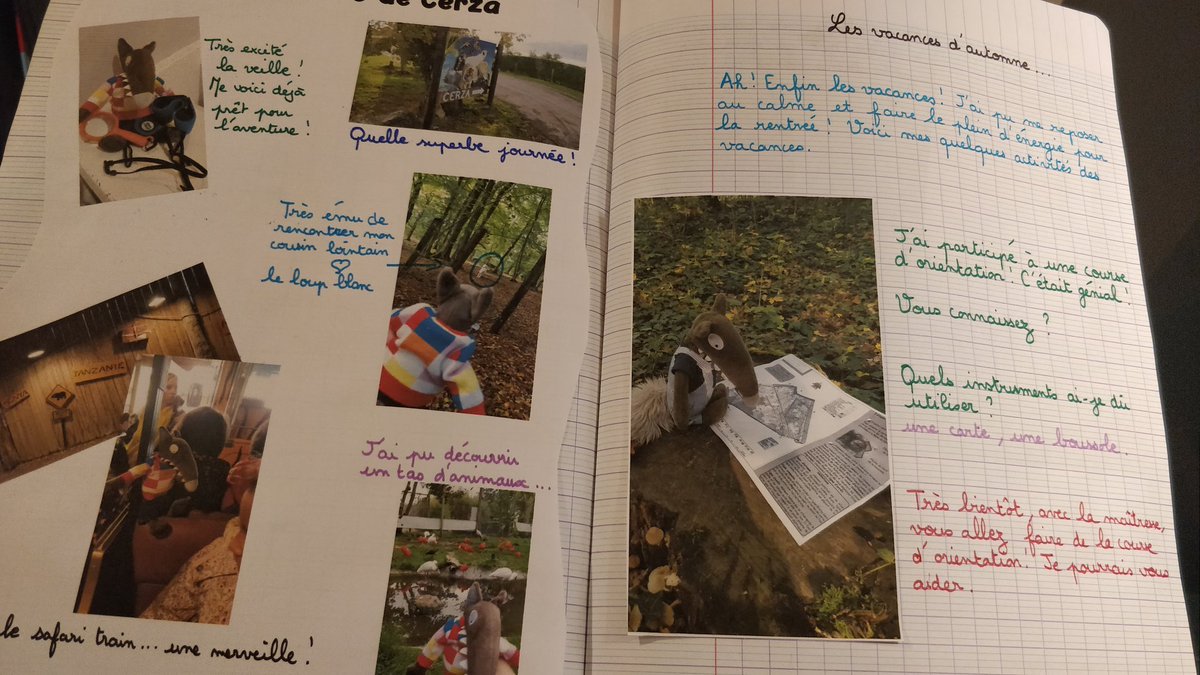 de Cerza
Très excité
la veille !
Me voici déjà
prêt pour
l'aventure !
CERZA
Quelle superbe journée !
Très ému de
rencontrer mon
cousin lointain
le loup blanc
TANZANIE
J'ai pu découvrir
un tas d'animaux...
le safari train... une merveille !
Les vacances d'automne...
Ah ! Enfin les vacances ! J'ai pu me reposer
au calme et faire le plein d'énergie pour
la rentrée ! Voici mes quelques activités des
vacances.
J'ai participé à une course
d'orientation ! C'était génial !
Vous connaissez ?
Quels instruments ai-je dû
utiliser ?
une carte, une boussole.
Très bientôt, avec la maîtresse,
vous allez faire de la course
d'orientation. Je pourrais vous
aider.